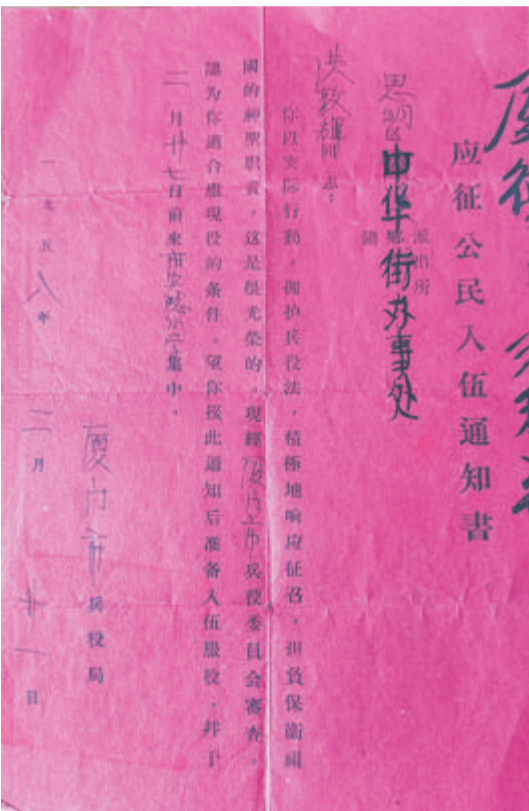 应征公民入伍通知書
派出所
鄉
鎮
思明区中华街办事处
洪毅雄同志：
你以实际行動，拥护兵役法，積極地响应征召，担負保衛祖
國的神聖职責，这是很光荣的。現經厦门市兵役委員会審查，
認为你適合服現役的条件。望你接此通知后准备入伍服役，并于
二月廿七日前來市集中。
厦门市兵役局
一九五八年二月廿一日